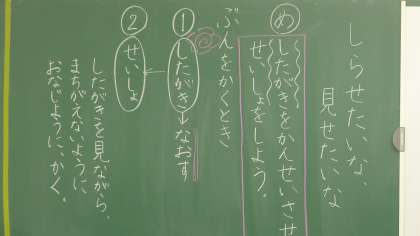 しらせたいな、
見せたいな
め
したがきをかんせいさせ
せいしょをしよう。
ぶんをかくとき
①
したがき→なおす
②
せいしょ
したがきを見ながら、
まちがえないように
おなじように、かく。